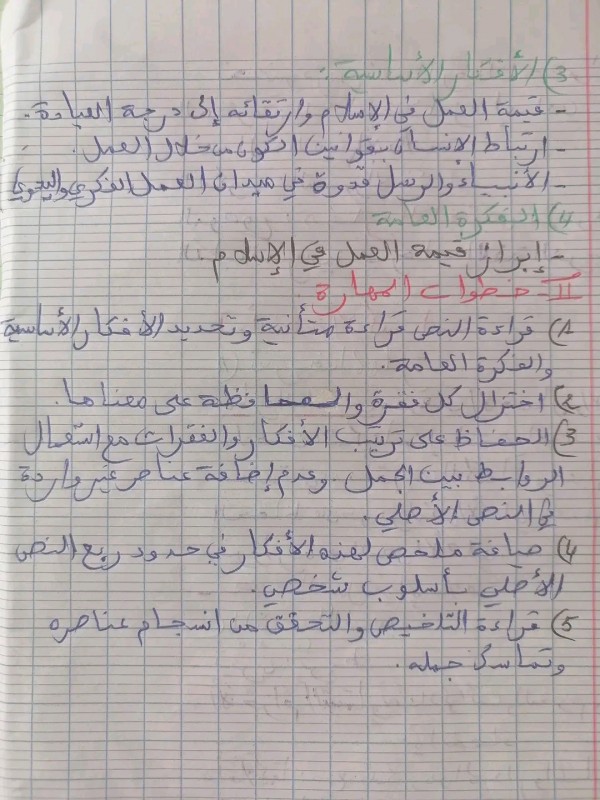 3) الأفكار الأساسية:
- قيمة العمل في الإسلام وارتقائه إلى درجة العبادة.
- ارتباط الإنسان بقوانين الكون من خلال العمل.
- الأنبياء والرسل قدوة في ميدان العمل الفكري واليدوي
4) الفكرة العامة
- إبراز قيمة العمل في الإسلام.
II- خطوات المهارة
1) قراءة النص قراءة متأنية وتحديد الأفكار الأساسية
والفكرة العامة.
2) اختزال كل فقرة والمحافظة على معناها.
3) الحفاظ على ترتيب الأفكار والفقرات مع استعمال
الروابط بين الجمل. وعدم إضافة عناصر غير واردة
في النص الأصلي.
4) صياغة ملخص لهذه الأفكار في حدود ربع النص
الأصلي بأسلوب شخصي.
5) قراءة التلخيص والتحقق من انسجام عناصره
وتماسك جمله.